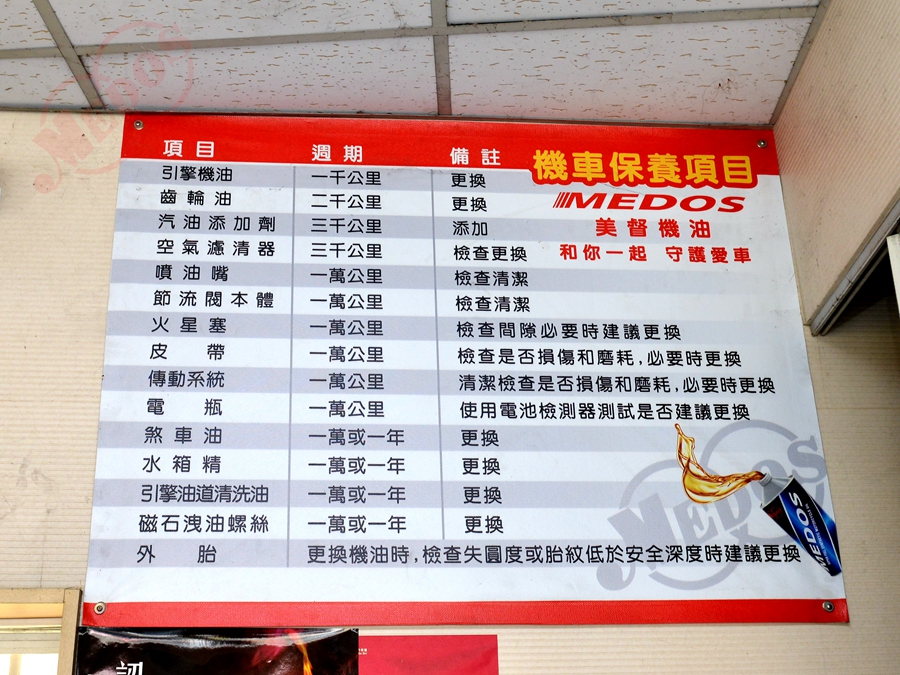 MEDOS
項目 週期 備註
機車保養項目
MEDOS
美督機油
和你一起 守護愛車
引擎機油 一千公里 更換
齒輪油 二千公里 更換
汽油添加劑 三千公里 添加
空氣濾清器 三千公里 檢查更換
噴油嘴 一萬公里 檢查清潔
節流閥本體 一萬公里 檢查清潔
火星塞 一萬公里 檢查間隙必要時建議更換
皮帶 一萬公里 檢查是否損傷和磨耗,必要時更換
傳動系統 一萬公里 清潔檢查是否損傷和磨耗,必要時更換
電瓶 一萬公里 使用電池檢測器測試是否建議更換
煞車油 一萬或一年 更換
水箱精 一萬或一年 更換
引擎油道清洗油 一萬或一年 更換
磁石洩油螺絲 一萬或一年 更換
外胎 更換機油時,檢查失圓度或胎紋低於安全深度時建議更換
MEDOS
MEDOS